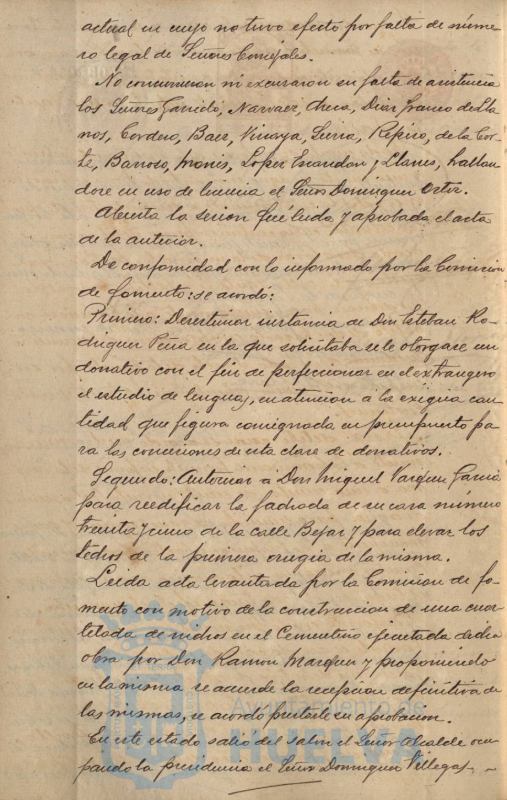 actual en cuyo no tuvo efecto por falta de núme-
ro legal de Señores Concejales.
No concurrieron ni excusaron su falta de asistencia
los Señores Garrido, Narvaez, Checa, Diaz Franco de Lla
nos, Cordero, Baez, Vizcaya, Seria, Repiso, de la Cor-
te, Barroso, Monis, Lopez Escandon y Llanes, hallan
dose en uso de licencia el Señor Dominguez Ortiz.
Abierta la sesion fué leida y aprobada el acta
de la anterior.
De conformidad con lo informado por la Comision
de fomento: se acordó:
Primero: Desestimar instancia de Don Esteban Ro-
driguez Peña en la que solicitaba se le otorgase un
donativo con el fin de perfeccionar en el extrangero
el estudio de lenguas, en atencion á la exigua can
tidad que figura consignada en presupuesto pa
ra las concesiones de esta clase de donativos.
Segundo: Autorizar á Don Miguel Vazquez Garcia
para reedificar la fachada de su casa número
treinta y cinco de la calle Bejar y para elevar los
techos de la primera crugia de la misma.
Leida acta levantada por la Comision de fo-
mento con motivo de la construccion de una cuar
telada de nichos en el Cementerio ejecutada dicha
obra por Don Ramon Marquez y proponiendo
en la misma se acuerde la recepcion definitiva de
las mismas, se acordó prestarle su aprobacion.
En este estado salio del salon el Señor Alcalde ocu-
pando la presidencia el Señor Dominguez Villegas.
Ayuntamiento de
HUELVA